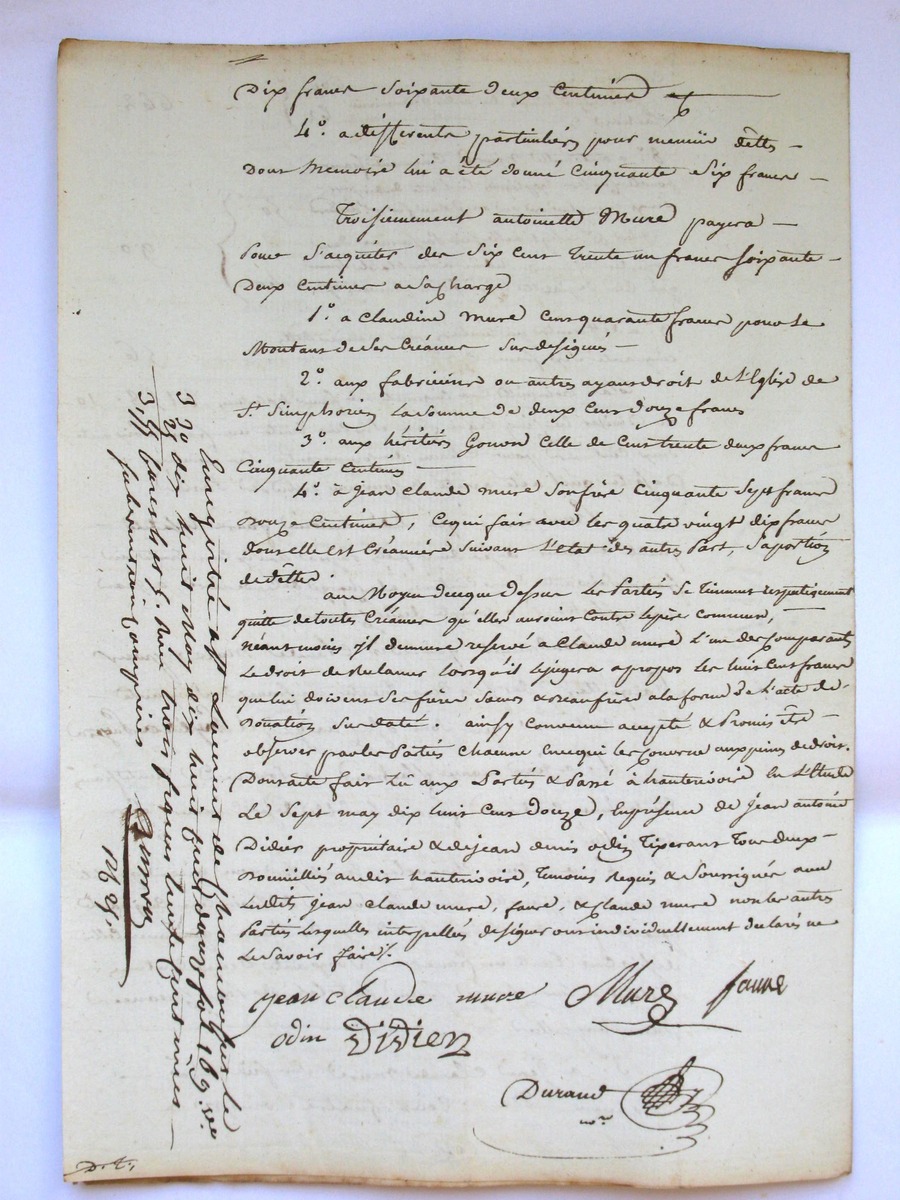 Dix francs Soixante deux Centimes
4.º a differents particuliers pour menüe dettes
Dont Memoire lui a été donné Cinquante Six francs
Troisiemement antoinette Mure payera
Pour S'aquiter des Six Cent Trente un francs Soixante
Deux Centimes a Sa Charge
1.º a Claudine mure Cent quarante francs pour le
Montant de Ses Créances Sus designés
2.º aux fabriciens ou autres ayant droit de L'Eglise de
St Simphorien La Somme de deux Cent douze francs
3.º aux héritiers Gonon Celle de Cent trente deux francs
Cinquante Centimes
4.º à Jean Claude mure Son frère Cinquante Sept francs
Douze Centimes, Cequi fait avec les quatre vingt dix francs
dont elle Est Créancière Suivant L'etat des autres Part, Sa portion
de dettes
au Moyen de cque dessus les Parties Se Tiennent respectivement
quitte de toutes Créances qu'elles auroient Contre le père Commun,
Néant moins il demeure reservé a Claude mure L'un des Comparants
Le droit de Reclamer lorsqu'il le jugera apropos les huit Cent francs
que lui doivent Ses frère Sœurs & Beau frère a la forme de L'acte de
Donation Sus daté. ainsy Convenu accepté & Promis Etre
observer par les Parties Chacune Encequi les Concerne aux peines de droit.
Dont acte fait Lû aux Parties & Passé à hauterivoire En L'Etude
Le Sept may dix huit Cent Douze, En présence de Jean antoine
Didier propriétaire & de jean denis odin Tisserant Tous deux
Domiciliés audit hauterivoire, Temoins requis & Soussignés avec
Lesdits Jean Claude mure, faure, & Claude mure non les autres
Parties Lesquelles interpellées de signer ont individuellement declarés ne
Le Savoir faire /.
jean claude mure Mure faure
odin DiDier
Durand
nre
Enregistré a St Laurent de chamousset le
dix huit May dix huit cent douze fol 169. vo
reçu trois francs trente centimes
3 30